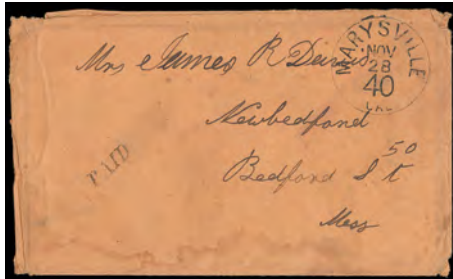 MARYSVILLE
NOV
28
40
CAL
Mrs James R Davis
Newbedford
50
Bedford St
Mass
PAID